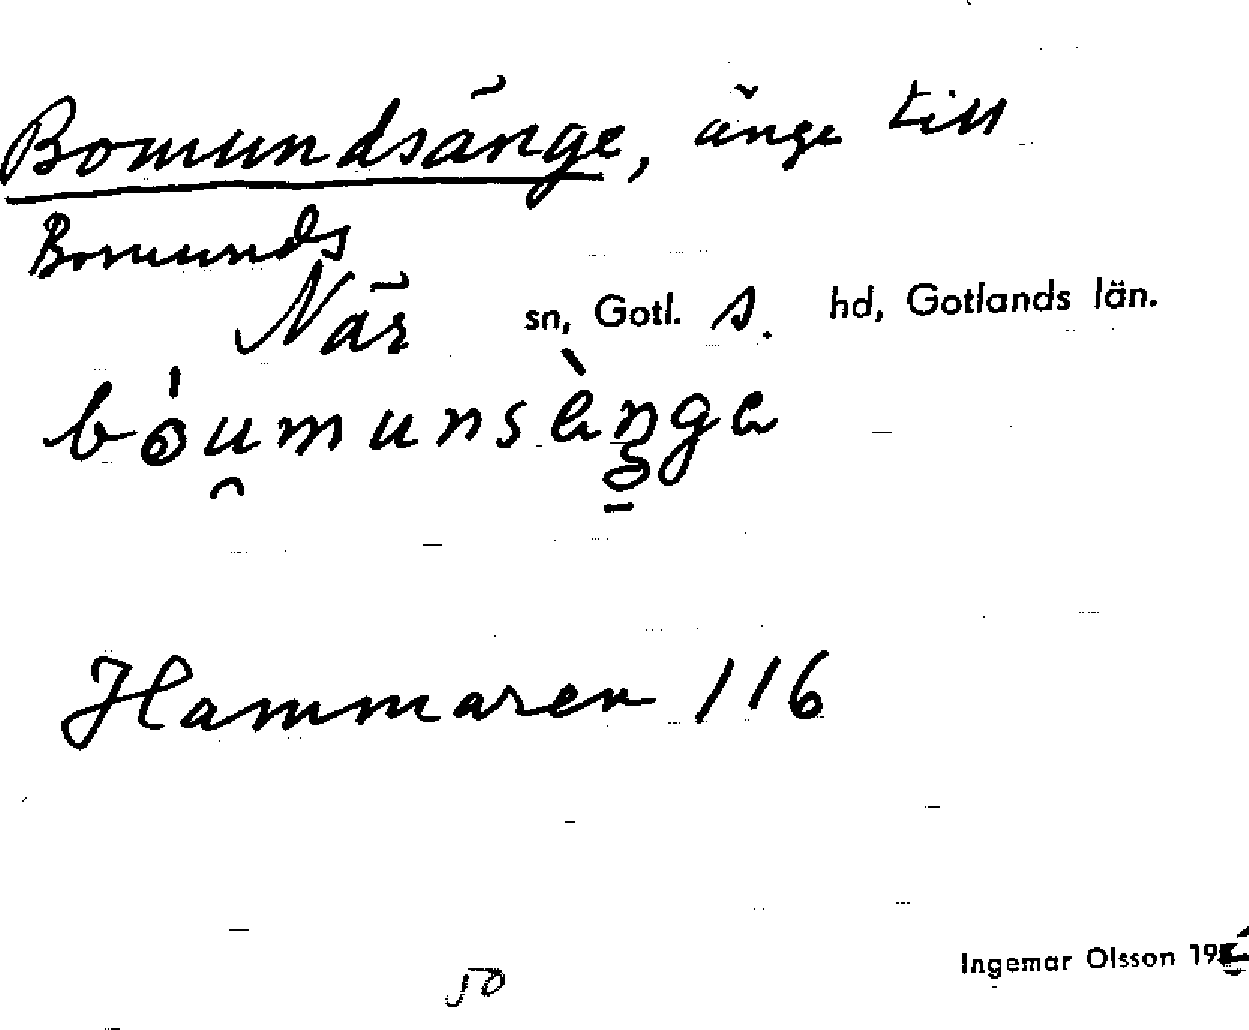 Bomundsänge, änge till
Bomunds
När sn, Gotl. S. hd, Gotlands län.
Hammaren 116
50
Ingemar Olsson